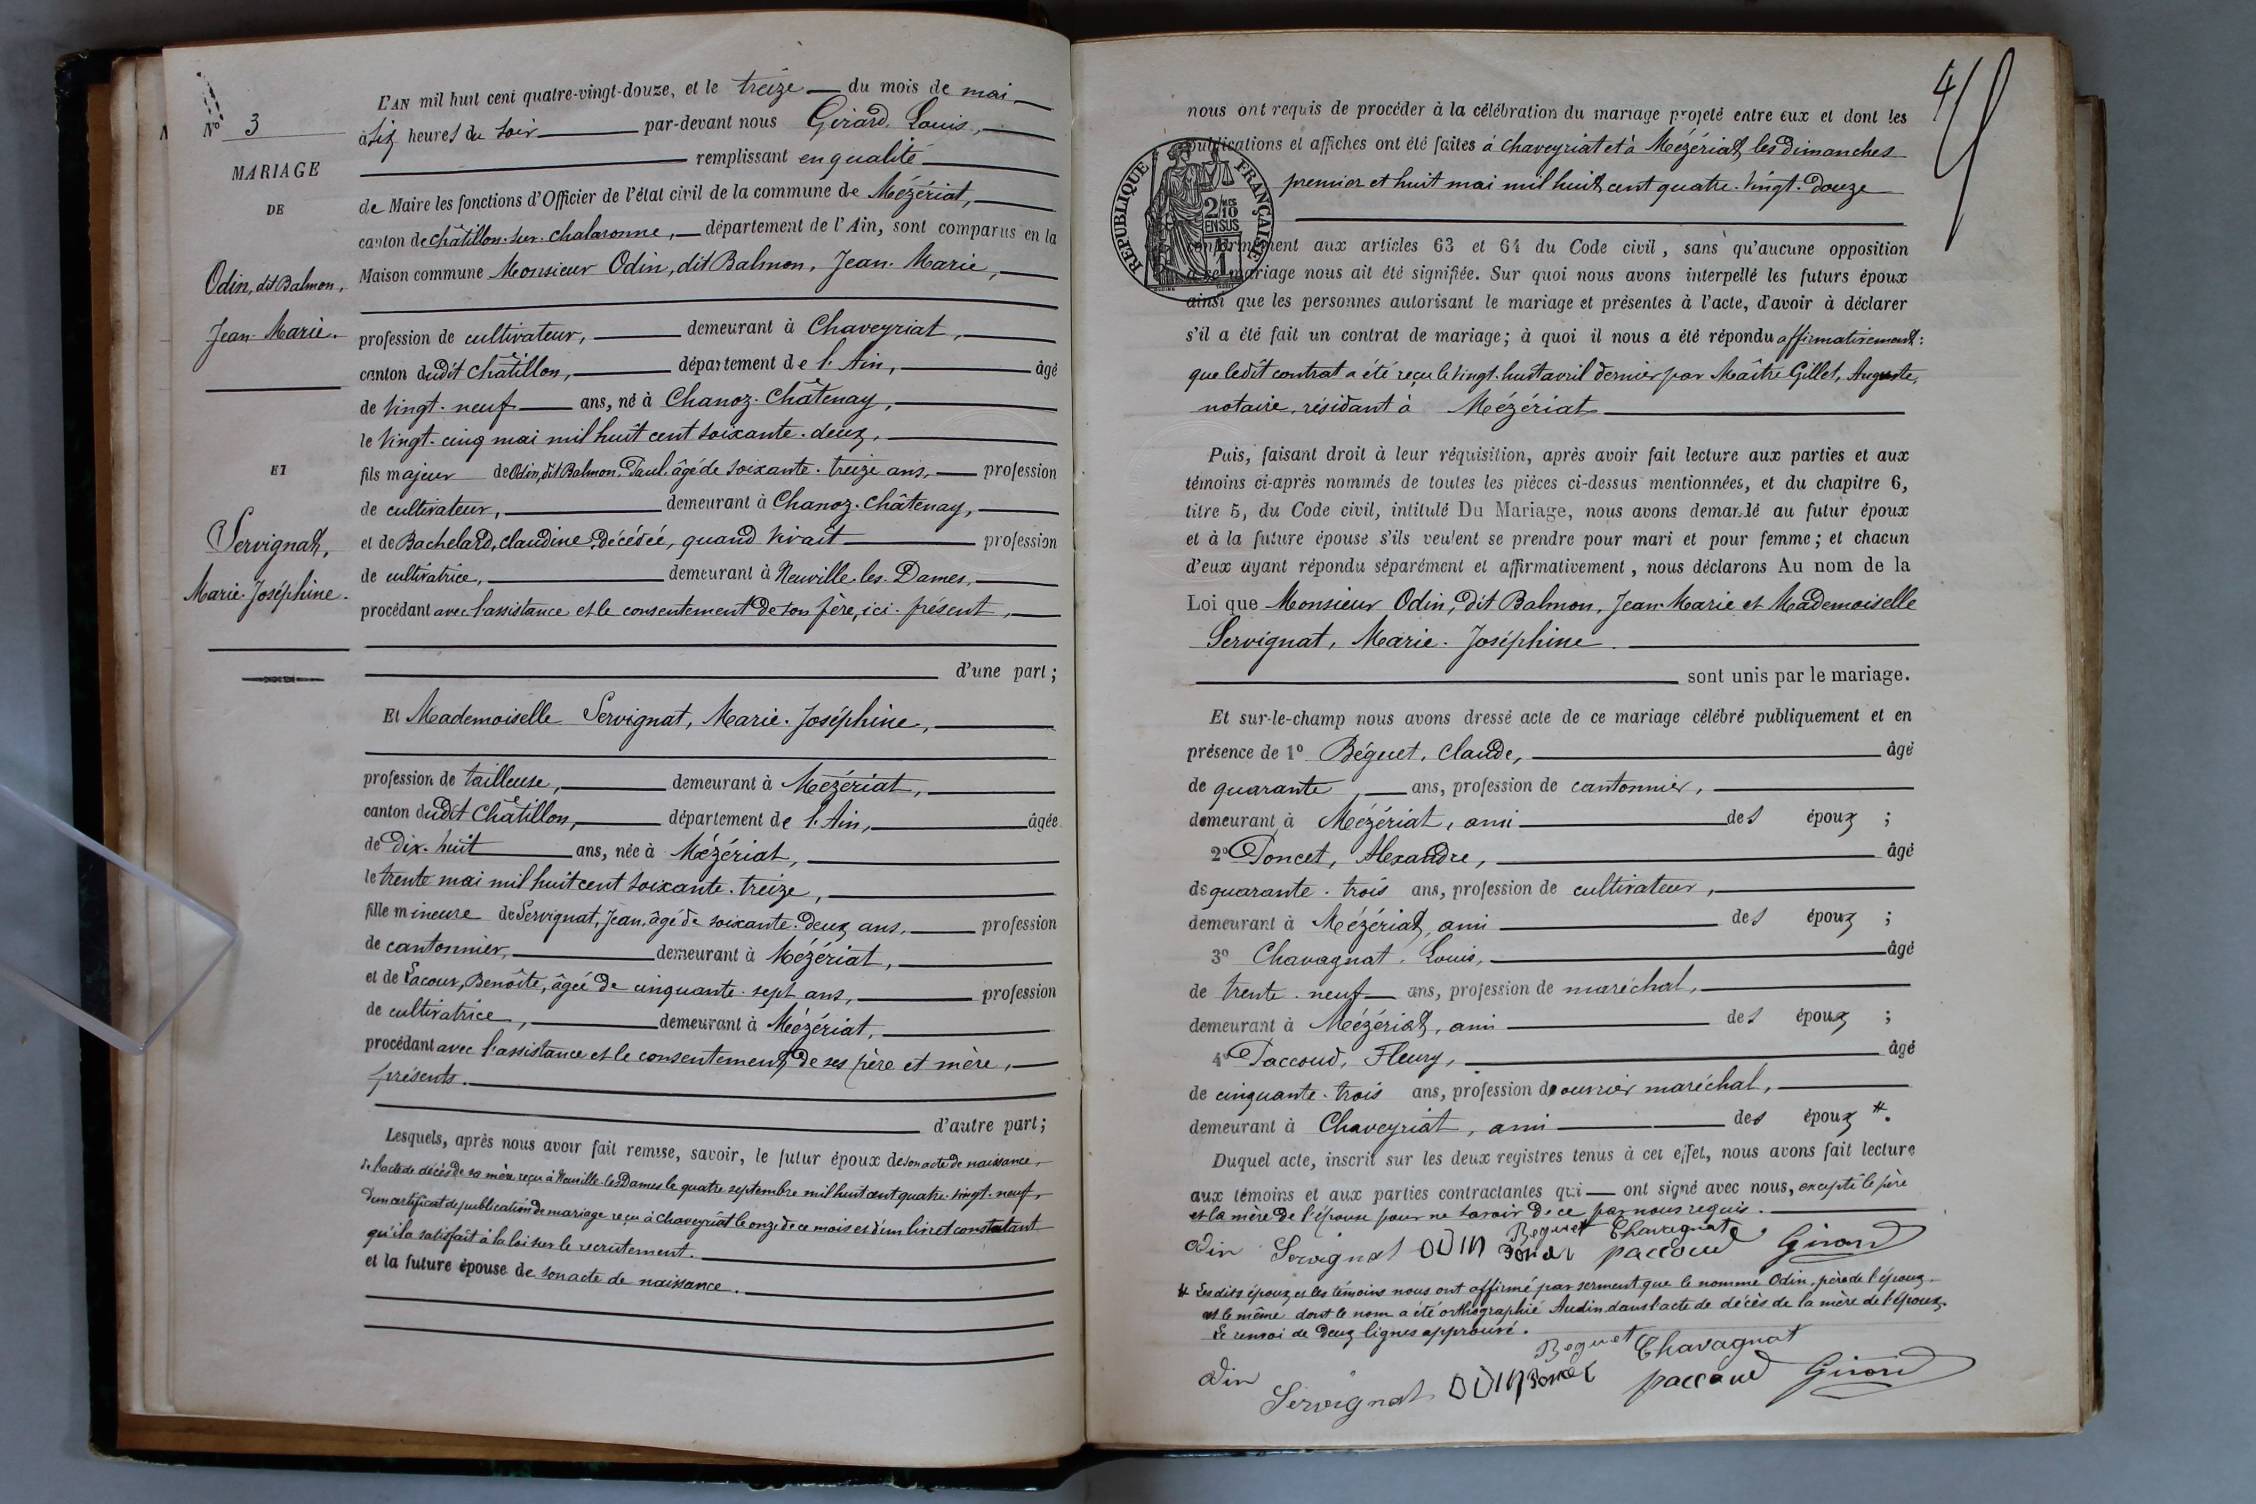 L'AN mil huit cent quatre-vingt-douze, et le treize du mois de mai
à six heures du soir par-devant nous Girard, Louis,
remplissant en qualité
de Maire les fonctions d'Officier de l'état civil de la commune de Mézériat,
canton de Châtillon-sur-Chalaronne, département de l'Ain, sont comparus en la
Maison commune Monsieur Odin, dit Balmon, Jean-Marie,
profession de cultivateur, demeurant à Chaveyriat,
canton dudit Châtillon, département de l'Ain, âgé
de vingt-neuf ans, né à Chanoz-Châtenay,
le vingt-cinq mai mil huit cent soixante-deux,
fils majeur de Odin, dit Balmon, Paul, âgé de soixante-treize ans, profession
de cultivateur, demeurant à Chanoz-Châtenay,
et de Bachelard, Claudine, décédée, quand vivait profession
de cultivatrice, demeurant à Neuville-les-Dames,
procédant avec l'assistance et le consentement de son père, ici présent,
d'une part;
Et Mademoiselle Servignat, Marie-Joséphine,
profession de tailleuse, demeurant à Mézériat,
canton dudit Châtillon, département de l'Ain, âgée
de dix-huit ans, née à Mézériat,
le trente mai mil huit cent soixante-treize,
fille mineure de Servignat, Jean, âgé de soixante-deux ans, profession
de cantonnier, demeurant à Mézériat,
et de Lacour, Benoîte, âgée de cinquante-sept ans, profession
de cultivatrice, demeurant à Mézériat,
procédant avec l'assistance et le consentement de ses père et mère,
présents.
d'autre part;
Lesquels, après nous avoir fait remise, savoir, le futur époux de son acte de naissance,
de l'acte de décès de sa mère reçu à Neuville-les-Dames le quatre septembre mil huit cent quatre-vingt-neuf,
d'un certificat de publication de mariage reçu à Chaveyriat le onze de ce mois et d'un livret constatant
qu'il a satisfait à la loi sur le recrutement.
et la future épouse de son acte de naissance.
N° 3
MARIAGE
DE
Odin, dit Balmon,
Jean-Marie.
ET
Servignat,
Marie-Joséphine.
4
nous ont requis de procéder à la célébration du mariage projeté entre eux et dont les
publications et affiches ont été faites à Chaveyriat et à Mézériat, les dimanches
premier et huit mai mil huit cent quatre-vingt-douze
RÉPUBLIQUE FRANÇAISE
2/10 EN SUS
conformément aux articles 63 et 64 du Code civil, sans qu'aucune opposition
à ce mariage nous ait été signifiée. Sur quoi nous avons interpellé les futurs époux
ainsi que les personnes autorisant le mariage et présentes à l'acte, d'avoir à déclarer
s'il a été fait un contrat de mariage; à quoi il nous a été répondu affirmativement:
que ledit contrat a été reçu le vingt-huit avril dernier par Maître Gillet, Auguste,
notaire, résidant à Mézériat
Puis, faisant droit à leur réquisition, après avoir fait lecture aux parties et aux
témoins ci-après nommés de toutes les pièces ci-dessus mentionnées, et du chapitre 6,
titre 5, du Code civil, intitulé Du Mariage, nous avons demandé au futur époux
et à la future épouse s'ils veulent se prendre pour mari et pour femme; et chacun
d'eux ayant répondu séparément et affirmativement, nous déclarons Au nom de la
Loi que Monsieur Odin, dit Balmon, Jean-Marie et Mademoiselle
Servignat, Marie-Joséphine.
sont unis par le mariage.
Et sur-le-champ nous avons dressé acte de ce mariage célébré publiquement et en
présence de 1° Béguet, Claude, âgé
de quarante, ans, profession de cantonnier,
demeurant à Mézériat, ami des époux;
2° Poncet, Alexandre, âgé
de quarante-trois ans, profession de cultivateur,
demeurant à Mézériat, ami des époux;
3° Chavagnat, Louis, âgé
de trente-neuf ans, profession de maréchal,
demeurant à Mézériat, ami des époux;
4° Paccoud, Fleury, âgé
de cinquante-trois ans, profession de ouvrier maréchal,
demeurant à Chaveyriat, ami des époux #.
Duquel acte, inscrit sur les deux registres tenus à cet effet, nous avons fait lecture
aux témoins et aux parties contractantes qui ont signé avec nous, excepté le père
et la mère de l'épouse pour ne savoir de ce par nous requis.
Odin Servignat ODIN Beguet Poncet Chavagnat paccoud Girard
# Lesdits époux et les témoins nous ont affirmé par serment que le nommé Odin, père de l'époux
est le même dont le nom a été orthographié Audin dans l'acte de décès de la mère de l'époux.
Le renvoi de deux lignes approuvé.
Odin Servignat ODIN Beguet Poncet Chavagnat paccoud Girard